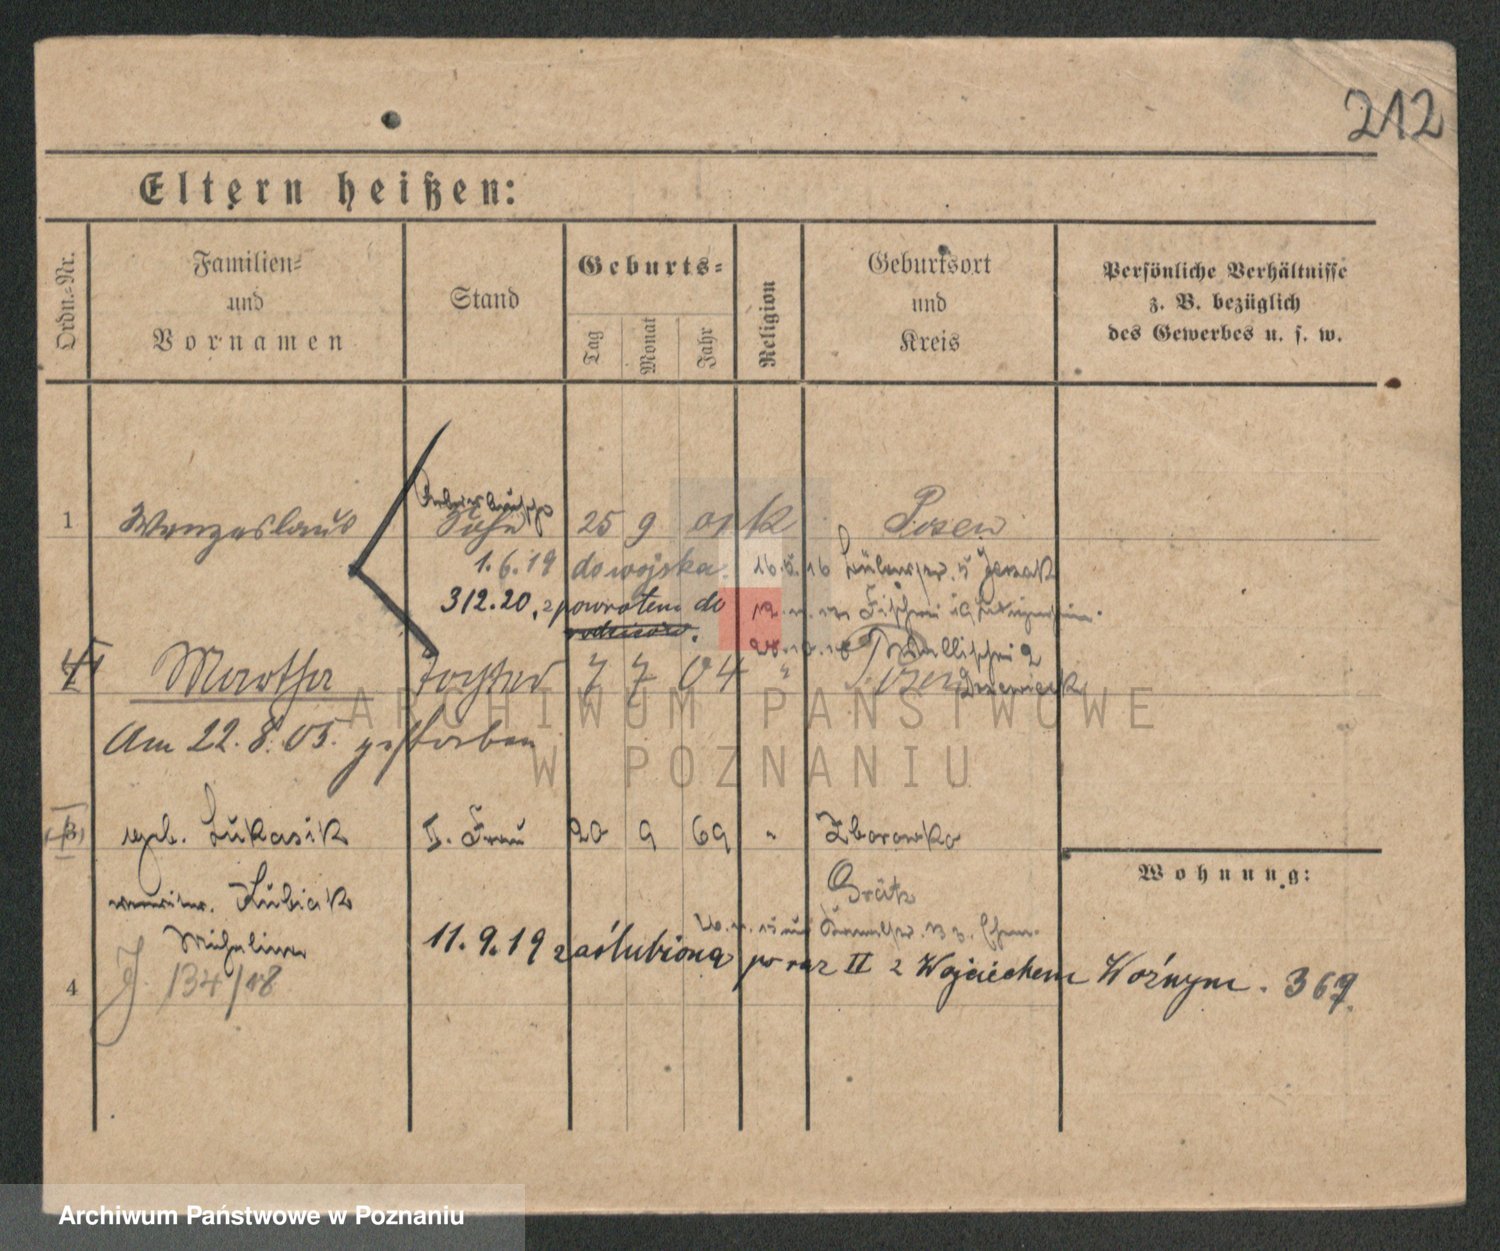 212
Eltern heißen:
Ordn.-Nr.
Familien-
und
Vornamen
Stand
Geburts-
Tag
Monat
Jahr
Religion
Geburtsort
und
Kreis
Persönliche Verhältnisse
z. B. bezüglich
des Gewerbes u. s. w.
1 Wenzeslaus Sohn 25 9 01 k Posen
1.6.19 do wojska.
312.20, z powrotem do
rodziców.
Martha Tochter 7 7 04 " Posen
Am 22.8.05. gestorben
geb. Łukasik II. Frau 20 9 69 " Zborowko
Grätz
Wohnung:
Kubiak
Michalina
11.9.19 zaślubiona po raz II z Wojciechem Woźnym. 369.
4 J. 134/18
ARCHIWUM PAŃSTWOWE
W POZNANIU
Archiwum Państwowe w Poznaniu